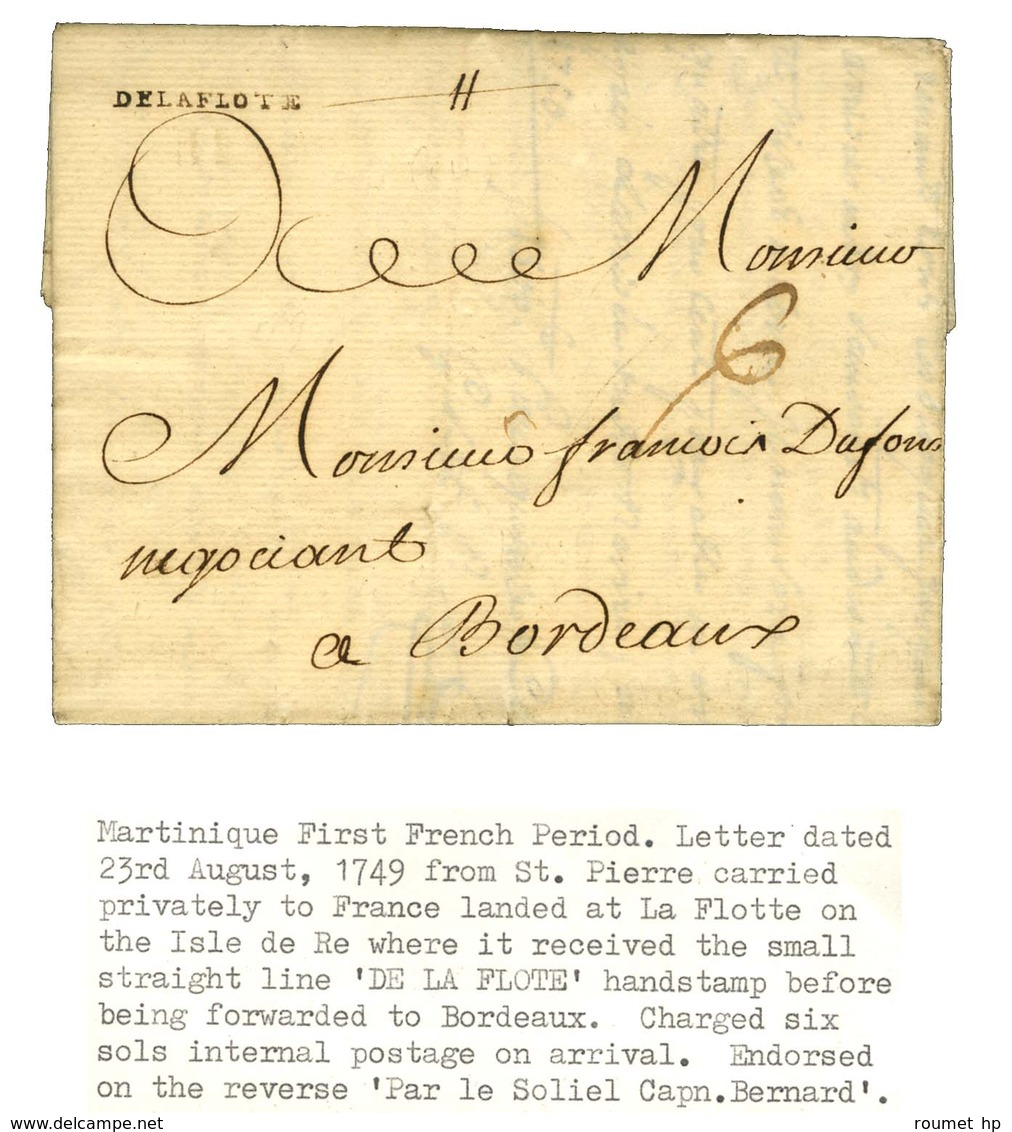 DELAFLOTE
A Monsieur
6
Monsieur francois Dufour
negociant
a Bordeaux
Martinique First French Period. Letter dated
23rd August, 1749 from St. Pierre carried
privately to France landed at La Flotte on
the Isle de Re where it received the small
straight line 'DE LA FLOTE' handstamp before
being forwarded to Bordeaux. Charged six
sols internal postage on arrival. Endorsed
on the reverse 'Par le Soliel Capn.Bernard'.
delcampe.net
roumet hp